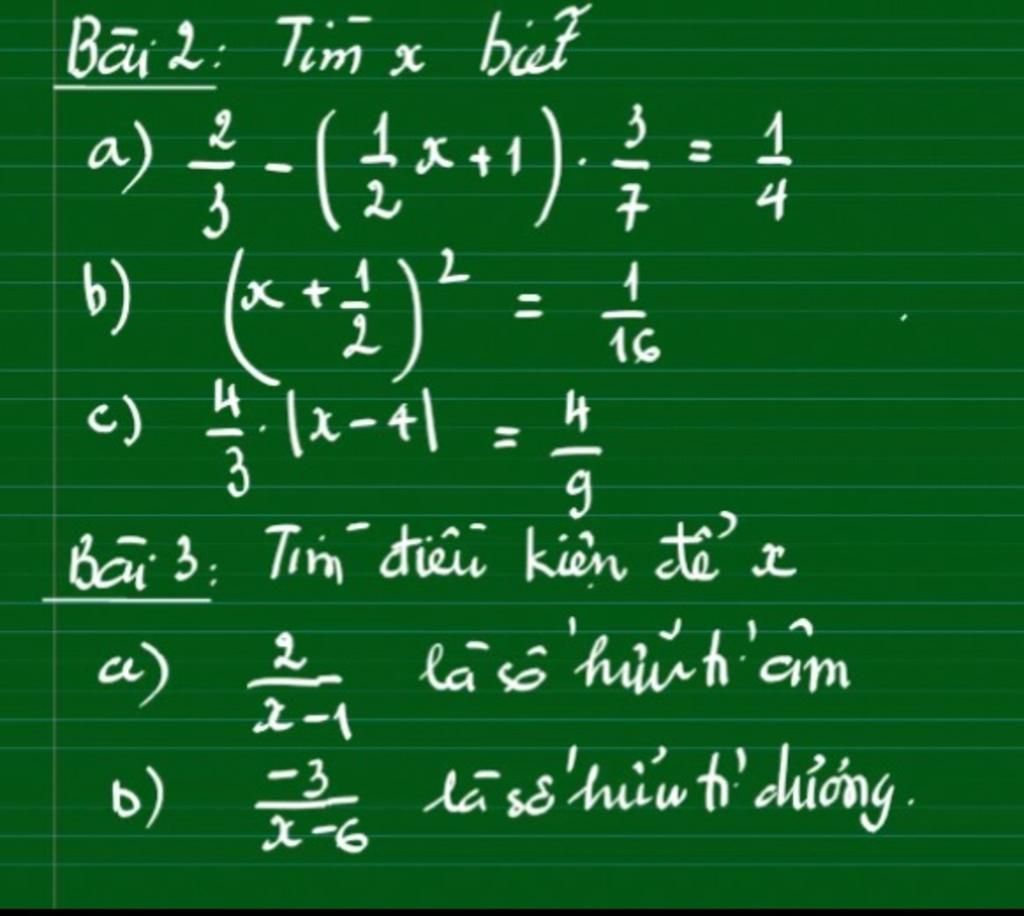 Bài 2: Tìm x biết
a) 2/3 - (1/2 x + 1) . 3/7 = 1/4
b) (x + 1/2)² = 1/16
c) 4/3 . |x - 4| = 4/9
Bài 3: Tìm điều kiện để x
a) 2/(x-1) là số hữu tỉ âm
b) -3/(x-6) là số hữu tỉ dương.